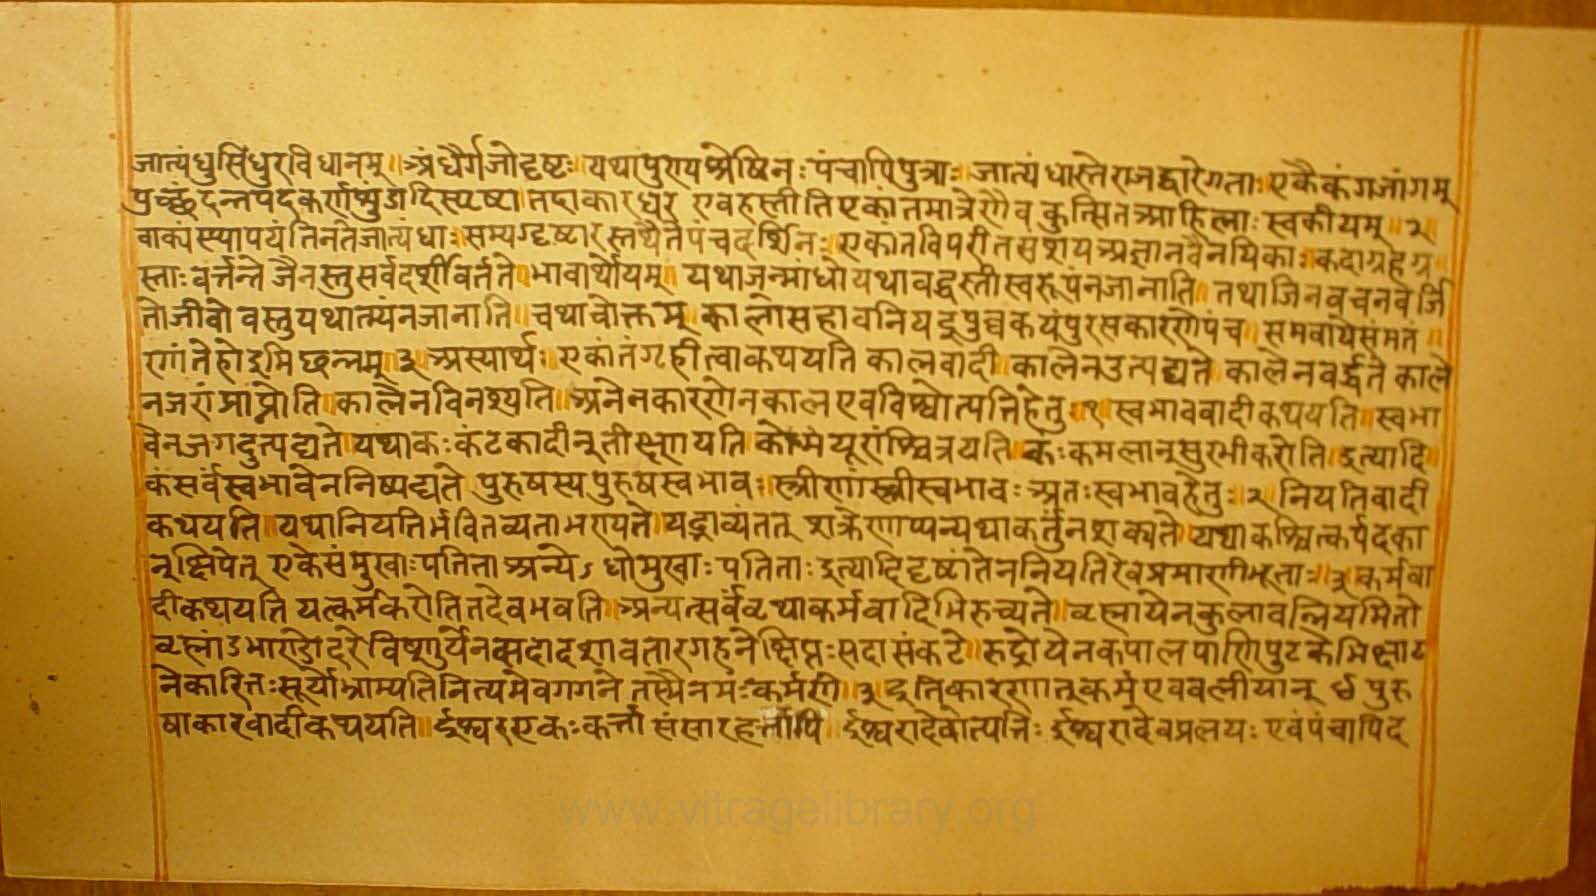 जात्यंधुसिंधुरविधानम्॥अंधैर्गजोदृष्टः॥यथापुरायश्रेष्ठिनःपंचापिपुत्राः॥जात्यंधास्तेराजद्वारेगताःएकैकंगजांगम्
प्रुच्छंदन्तपदकर्णभ्रुडादिस्पृष्टा॥तदाकारधर एवहस्तीतिएकांतमात्रेणैव कुत्सितआहिलाः स्वकीयम्॥२॥
वाक्यंस्यापयंतिनतेजात्यंधाःसम्यग्दृष्टारस्तथैतेपंचदर्शिनः॥एकांतविपरीतसंशयअज्ञानवैनयिकाःकदाग्रहग्र
स्ताःवर्त्तन्ते जैनस्तुसर्वदर्शीवर्तते॥भावार्थोयम्॥ यथाजन्मांधोयथावद्धस्तीस्वरूपंनजानाति॥तथाजिनवचनवर्जि
तोजीवोवस्तुयथात्म्यंनजानाति॥चथाचोक्तम् कालोसहावनियइपुव्वकयंपुरसकारणेपंच॥समवायेसंमतं॥
रगंतेहोइमिछत्तम्॥३॥अस्यार्थः॥एकांतंगृहीत्वाकथयति कालवादी॥कालेनउत्पद्यते कालेनवर्द्धते काले
नजरांप्राप्नोति॥कालेनविनश्यति॥अनेनकारणेनकालएवविश्वोत्पत्तिहेतु॥१॥स्वभाववादीकथयति॥स्वभा
वेनजगदुत्पद्यते॥यथाकःकंटकादीनूतीक्ष्णयति कोमयूरांश्चित्रयति॥कःकमलान्सुरभीकरोति॥इत्यादि॥
कंसर्वंस्वभावेननिष्पद्यते पुरुषस्यपुरुषस्वभावः॥स्त्रीणांस्त्रीस्वभावःअतःस्वभावहेतुः॥२॥नियतिवादी
कथयति॥यथानियतिर्भवितव्यताभण्यते॥यद्भाव्यंतत् शक्रेणाप्यन्यथाकर्तुंनशक्यते॥यथाकश्चित्कर्पदका
न्क्षिपेत् एकेसंमुखाःपतिताअन्येऽधोमुखाःपतिताःइत्यादिदृष्टांतेननियतिरेवप्रमाणीभूताः॥३॥कर्मवा
दीकथयति यत्कर्मकरोतितदेवभवति॥अन्यत्सर्वंवृथाकर्मवादिभिरुच्यते॥ब्रह्मायेनकुलावन्नियमितो
ब्रह्मांऽभाण्डोदरेविष्णुर्येनसदादशावतारगहनेक्षिप्तःसदासंकटे॥रुद्रोयेनकपालपाणिपुटकेभिक्षाट
नेकारितःसूर्योभ्राम्यतिनित्यमेवगगने तस्मैनमःकर्मणे॥३॥इतिकारणात्कर्मएववलीयान् ॥४॥पुरु
षाकारवादीकथयति॥ईश्वरएकःकर्त्ता संसारहर्त्तापि॥ईश्वरादेवोत्पत्तिः ईश्वरादेवप्रलयः एवंपंचापिद
www.vitragelibrary.org